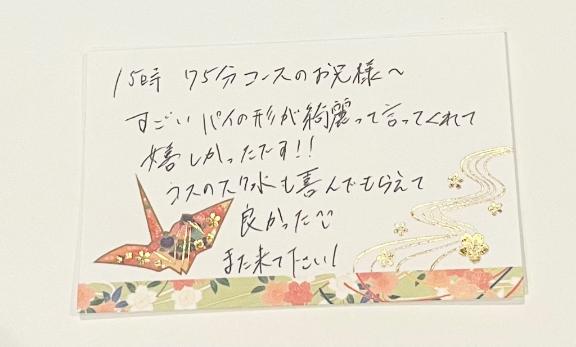 15時 75分コースのお兄様〜
すごいパイの形が綺麗って言ってくれて
嬉しかったです!!
うスのスク水も喜んでもらえて
良かった
また来て下さい!